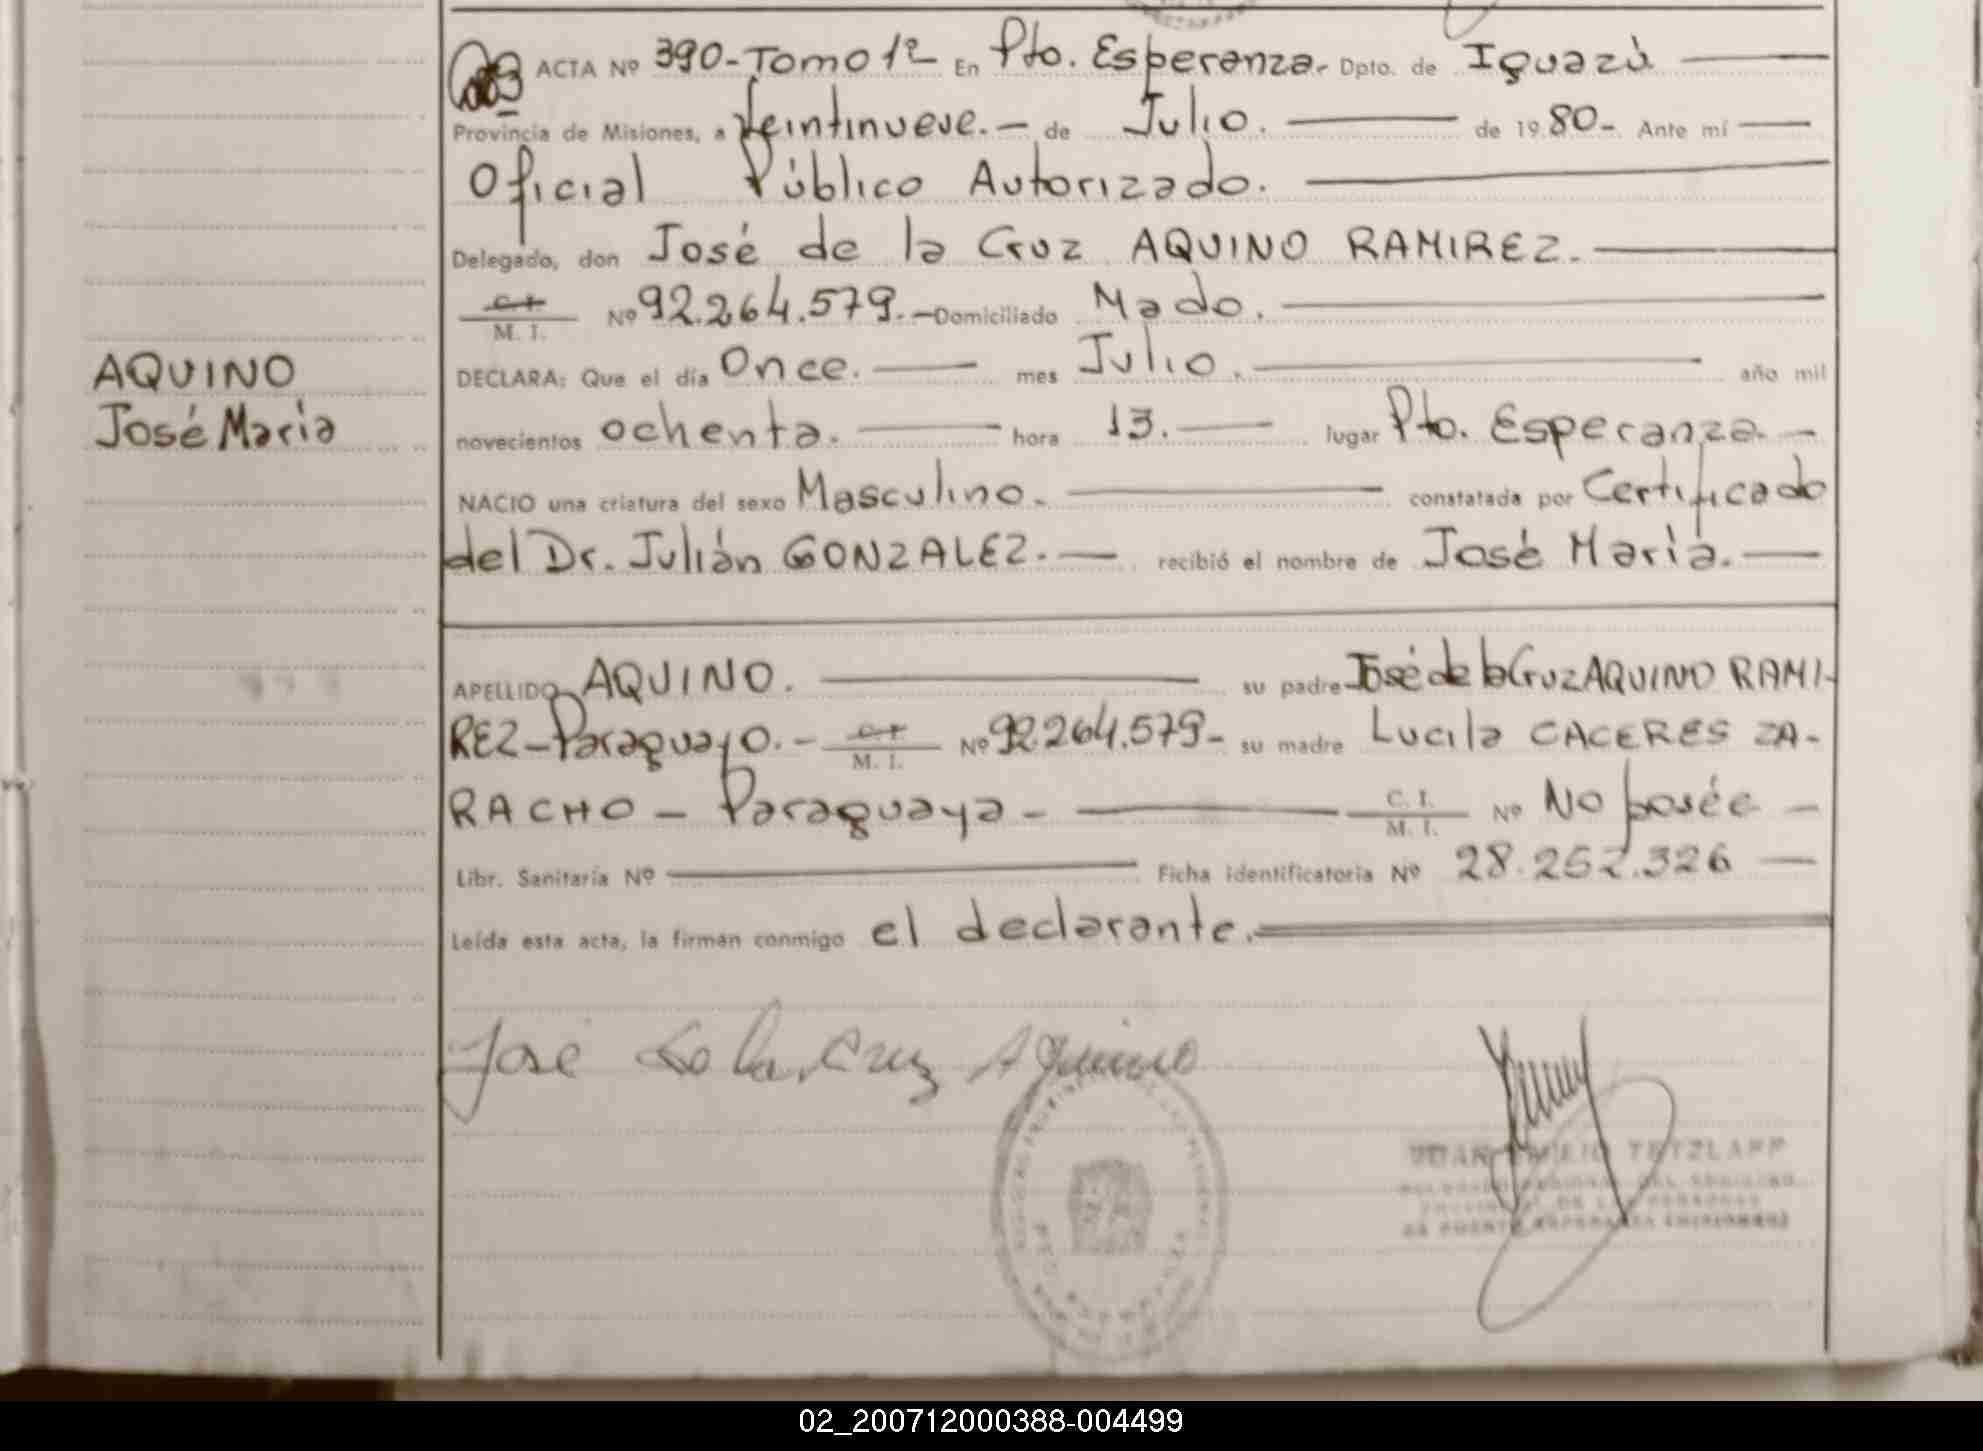 ACTA Nº 390-Tomo 1º En Pto. Esperanza.- Dpto. de Iguazú
Provincia de Misiones, a Veintinueve.- de Julio. de 1980- Ante mí
Oficial Público Autorizado.
Delegado, don José de la Cruz AQUINO RAMIREZ.
C.I.
M. I. Nº 92.264.579.- Domiciliado Mado.
AQUINO
DECLARA: Que el día Once. mes Julio. año mil
José Maria
novecientos ochenta. hora 13. lugar Pto. Esperanza.-
NACIO una criatura del sexo Masculino. constatada por Certificado
del Dr. Julián GONZALEZ. recibió el nombre de José Maria.
APELLIDO AQUINO. su padre José de la Cruz AQUINO RAMI-
REZ-Paraguayo.- C.I. M. I. Nº 92.264.579- su madre Lucila CACERES ZA-
RACHO - Paraguaya - C. I. M. I. Nº No posée -
Libr. Sanitaria Nº Ficha identificatoria Nº 28.252.326
Leída esta acta, la firman conmigo el declarante.
José de la Cruz Aquino
TETZLAFF
02_200712000388-004499